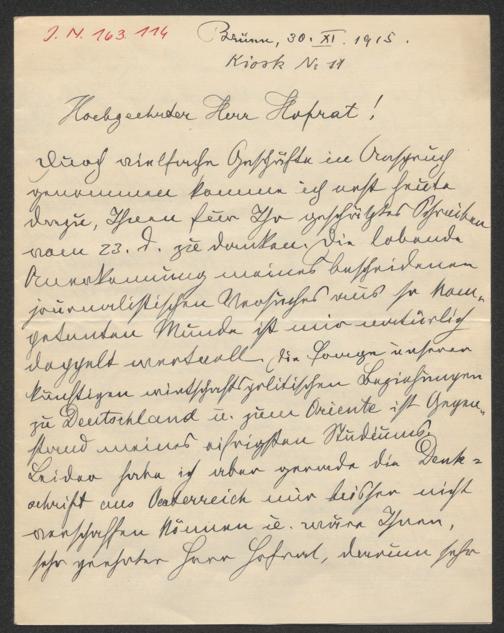 J. N. 163.114
Brünn, 30. XI. 1915.
Kiosk No 11
Hochgeehrter Herr Hofrat!
Durch vielfache Geschäfte in Anspruch
genommen komme ich erst heute
dazu, Ihnen für Ihr geschätztes Schreiben
vom 23. d. zu danken. Die lobende
Anerkennung meines bescheidenen
journalistischen Versuches aus so kom-
petenten Munde ist mir natürlich
doppelt wertvoll. Die Frage unserer
künftigen wirtschaftspolitischen Beziehungen
zu Deutschland u. zum Oriente ist Gegen-
stand meines eifrigsten Studiums.
Leider habe ich aber gerade die Denk-
schrift aus Oesterreich mir bisher nicht
verschaffen können u. wäre Ihnen,
sehr geehrter Herr Hofrat, darum sehr